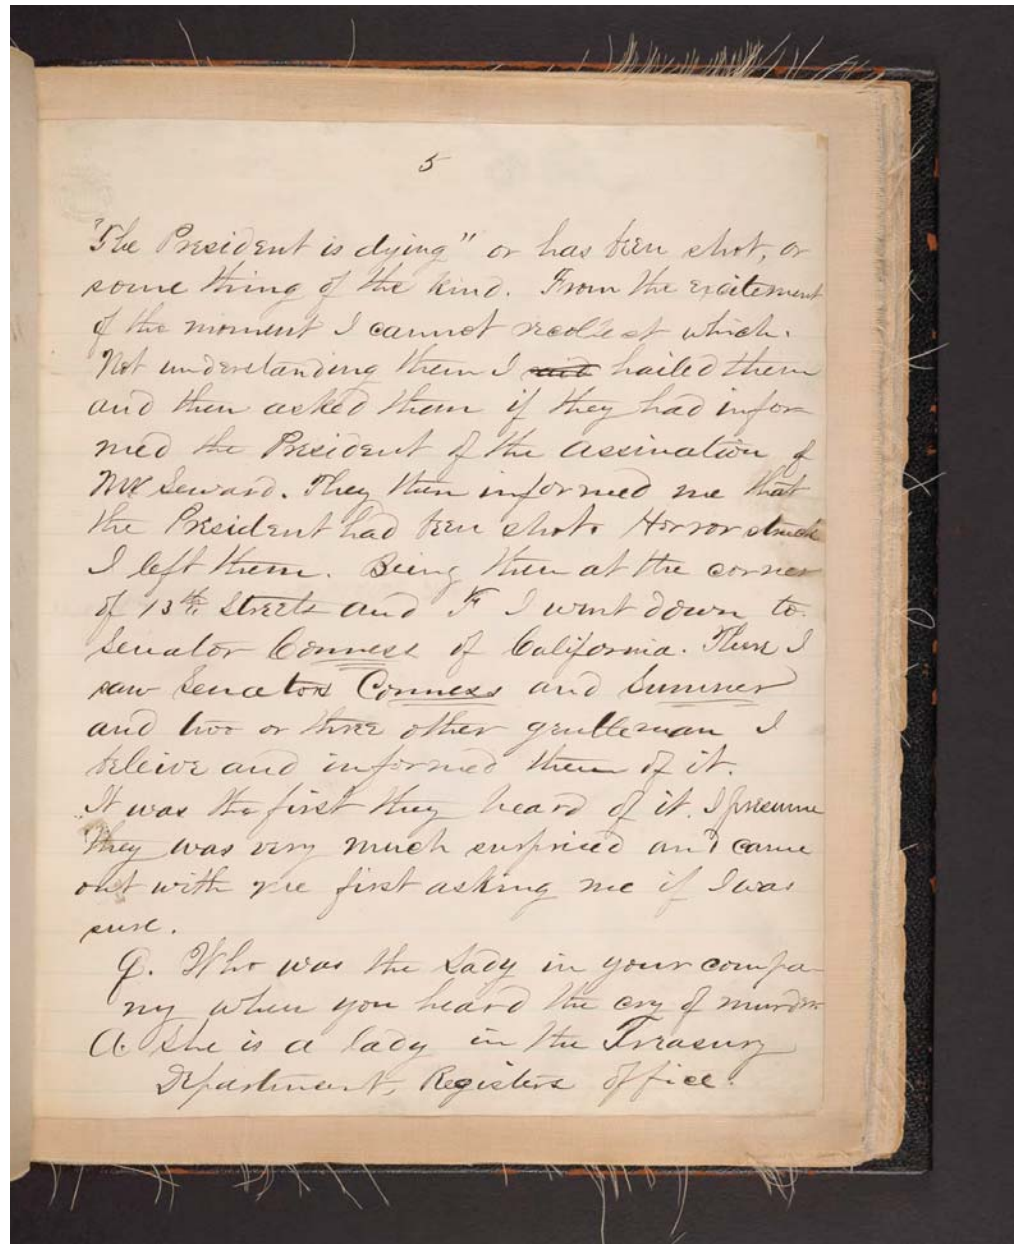 5
"The President is dying" or has been shot, or
some thing of the kind. From the excitement
of the moment I cannot recollect which.
Not understanding them I said hailed them
and then asked them if they had infor-
med the President of the assination of
Mr Seward. They then informed me that
the President had been shot. Horror struck
I left them. Being then at the corner
of 13th Streets and F I went down to
Senator Conness of California. There I
saw Senators Conness and Sumner
and two or three other gentleman I
beleive and informed them of it.
It was the first they heard of it. I presume
they was very much surprised and came
out with me first asking me if I was
sure.
Q. Who was the Lady in your compa-
ny when you heard the cry of murder
A. She is a lady in the Treasury
Department, Registers office.